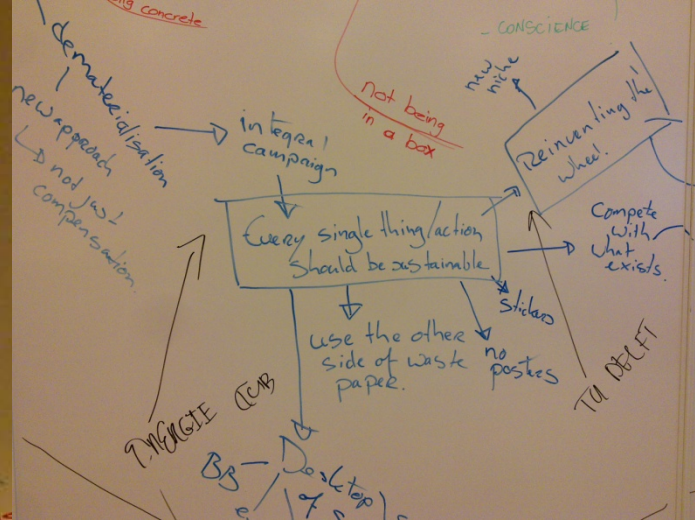 concrete
- CONSCIENCE
dematerialisation
new approach
not just
compensation.
integral
campaign
not being
in a box
new
niche
Reinventing the
wheel.
Every single thing/action
should be sustainable
Compete
with
what
exists.
stickers
use the other
side of waste
paper.
no
posters
TU DELFT
BB
Desktop
of